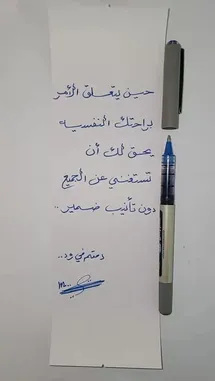 حين يتعلق الأمر
براحتك النفسيه
يحق لك أن
تستغني عن الجميع
دون تأنيب ضمير..
دمتم في ود..